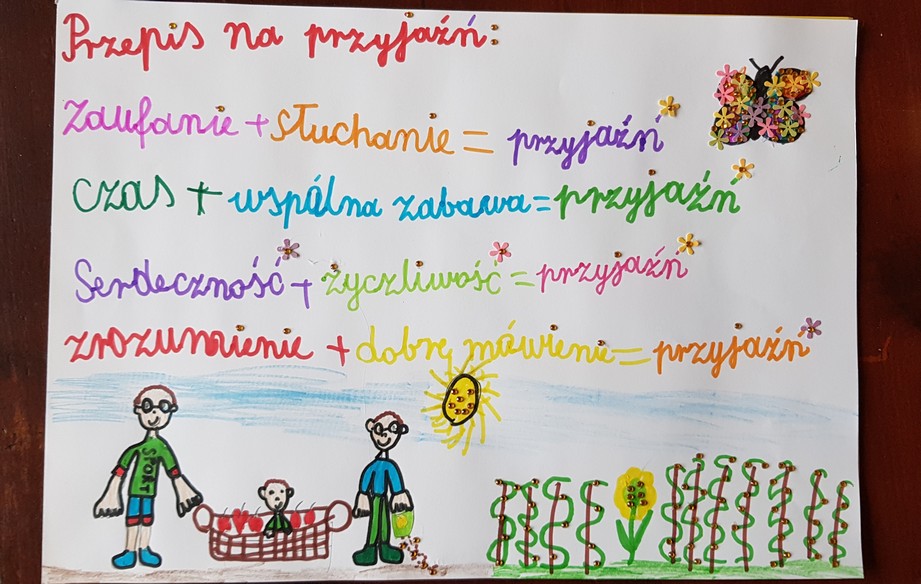 Przepis na przyjaźń:
Zaufanie + słuchanie = przyjaźń
czas + wspólna zabawa = przyjaźń
Serdeczność + życzliwość = przyjaźń
zrozumienie + dobre mówienie = przyjaźń
SPORT